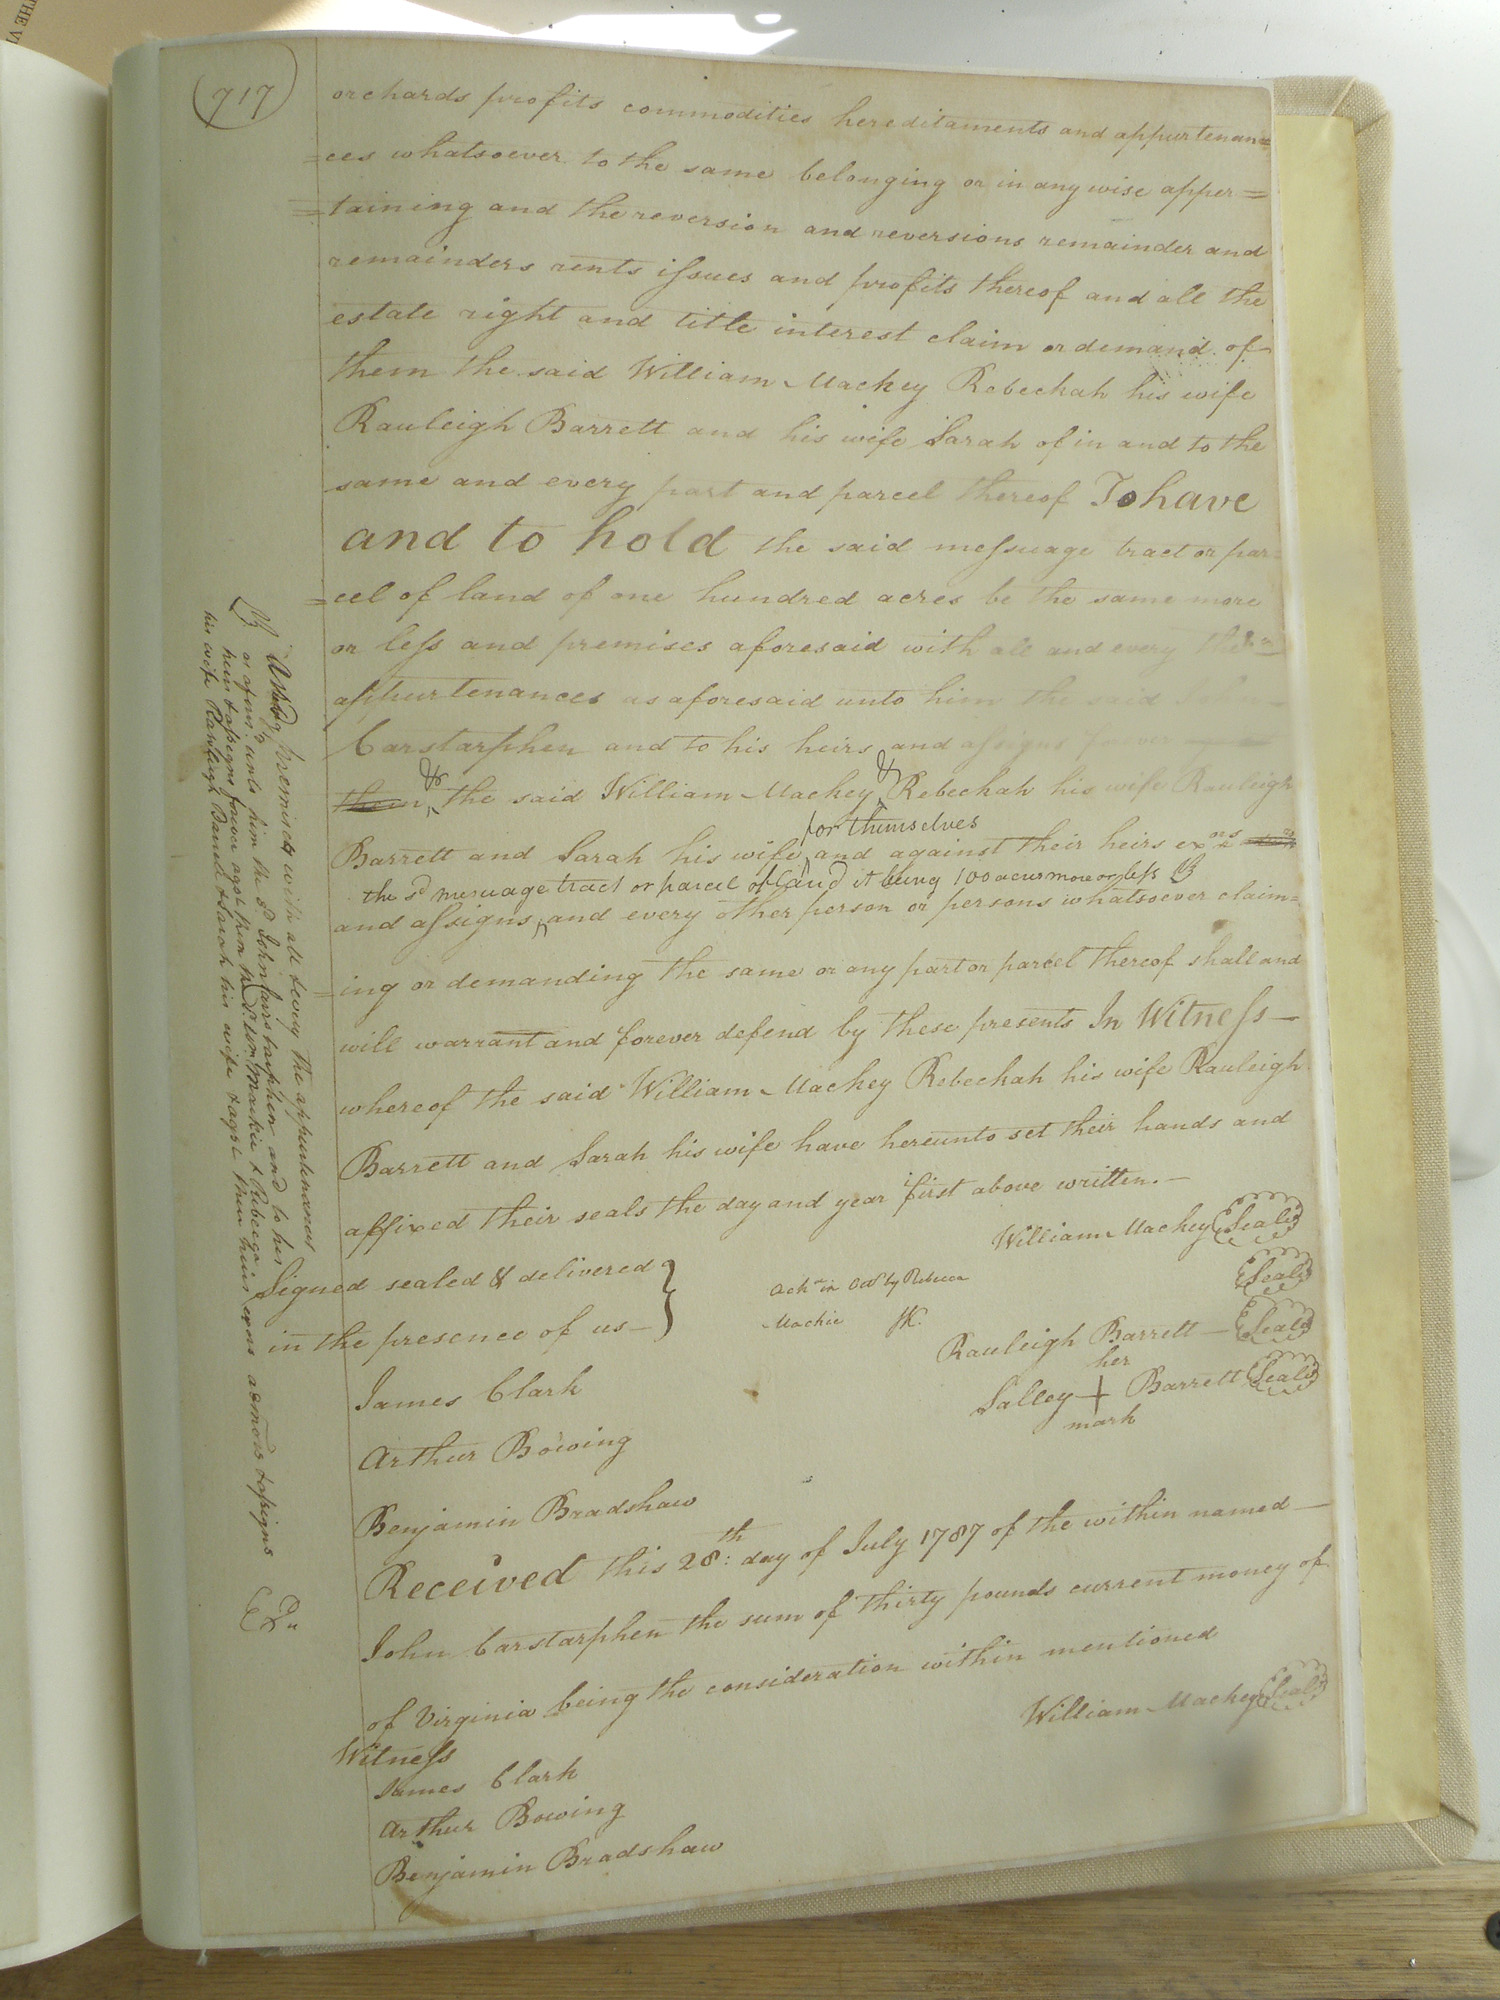 717
orchards profits commodities hereditaments and appurtenan=
=ces whatsoever to the same belonging or in any wise apper=
=taining and the reversion and reversions remainder and
remainders rents issues and profits thereof and all the
estate right and title interest claim or demand of
them the said William Mackey Rebeckah his wife
Rauleigh Barrett and his wife Sarah of in and to the
same and every part and parcel thereof To have
and to hold the said messuage tract or par=
=cel of land of one hundred acres be the same more
or less and premises aforesaid with all and every their
appurtenances as aforesaid unto him the said John
Carstarphen and to his heirs and assigns forever
& &
them the said William Mackey Rebeckah his wife Rauleigh
for themselves
Barrett and Sarah his wife and against their heirs exors
the sd messuage tract or parcel of land it being 100 acres more or less
and assigns, and every other person or persons whatsoever claim=
=ing or demanding the same or any part or parcel thereof shall and
will warrant and forever defend by these presents In Witness
whereof the said William Mackey Rebeckah his wife Rauleigh
Barrett and Sarah his wife have hereunto set their hands and
affixed their seals the day and year first above written.
William Mackey Seal
Signed sealed & delivered
Ackn in by Rebecca
Seal
in the presence of us
Mackie JK.
Rauleigh Barrett Seal
James Clark
her
Salley + Barrett Seal
mark
Arthur Bowing
Benjamin Bradshaw
Received this 28th: day of July 1787 of the within named
John Carstarphen the sum of thirty pounds current money of
of Virginia being the consideration within mentioned
William Mackey Seal
Witness
James Clark
Arthur Bowing
Benjamin Bradshaw
premises with all & every the appurtenances
or afores.d unto him the sd John Carstarphen and to his
heirs & assigns forever agst him the sd Wm Mackie & Rebecca
his wife Rawleigh Barrett & Sarah his wife & agst their heirs exors admors & assigns